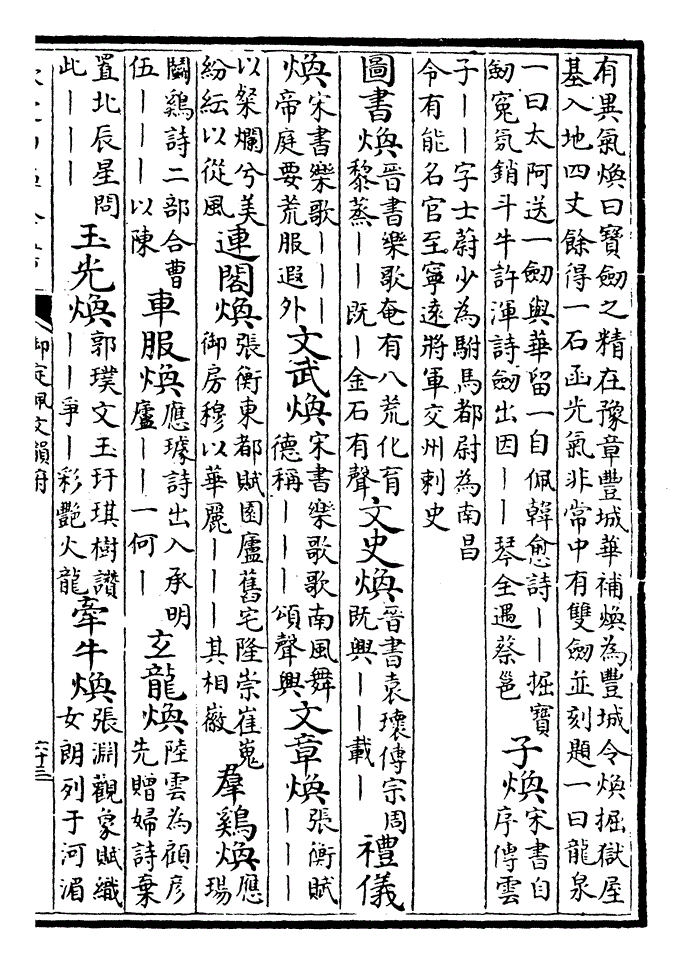 有異氣煥曰寶劒之精在豫章豐城華補煥為豐城令煥掘獄屋
基入地四丈餘得一石函光氣非常中有雙劒並刻題一曰龍泉
一曰太阿送一劒與華留一自佩韓愈詩丨丨掘寶
劒冤氛銷斗牛許渾詩劒出因丨丨琴全遇蔡邕
子煥
宋書自
序傳雲
子丨丨字士蔚少為駙馬都尉為南昌
令有能名官至寧遠將軍交州刺史
圖書煥
晉書樂歌奄有八荒化育
黎蒸丨丨既丨金石有聲
文史煥
晉書袁瓌傳宗周
既興丨丨載丨
禮儀
煥
宋書樂歌丨丨丨
帝庭要荒服遐外
文武煥
宋書樂歌歌南風舞
德稱丨丨丨頌聲興
文章煥
張衡賦
丨丨丨
以粲爛兮美
紛紜以從風
連閣煥
張衡東都賦園廬舊宅隆崇崔嵬
御房穆以華麗丨丨丨其相徽
羣鷄煥
應
瑒
鬬鷄詩二部合曹
伍丨丨丨以陳
車服煥
應璩詩出入承明
廬丨丨一何丨
玄龍煥
陸雲為顧彦
先贈婦詩棄
置北辰星問
此丨丨丨
玉光煥
郭璞文玉玕琪樹讚
丨丨爭丨彩艷火龍
牽牛煥
張淵觀象賦織
女朗列于河湄
御定佩文韻府
六十三